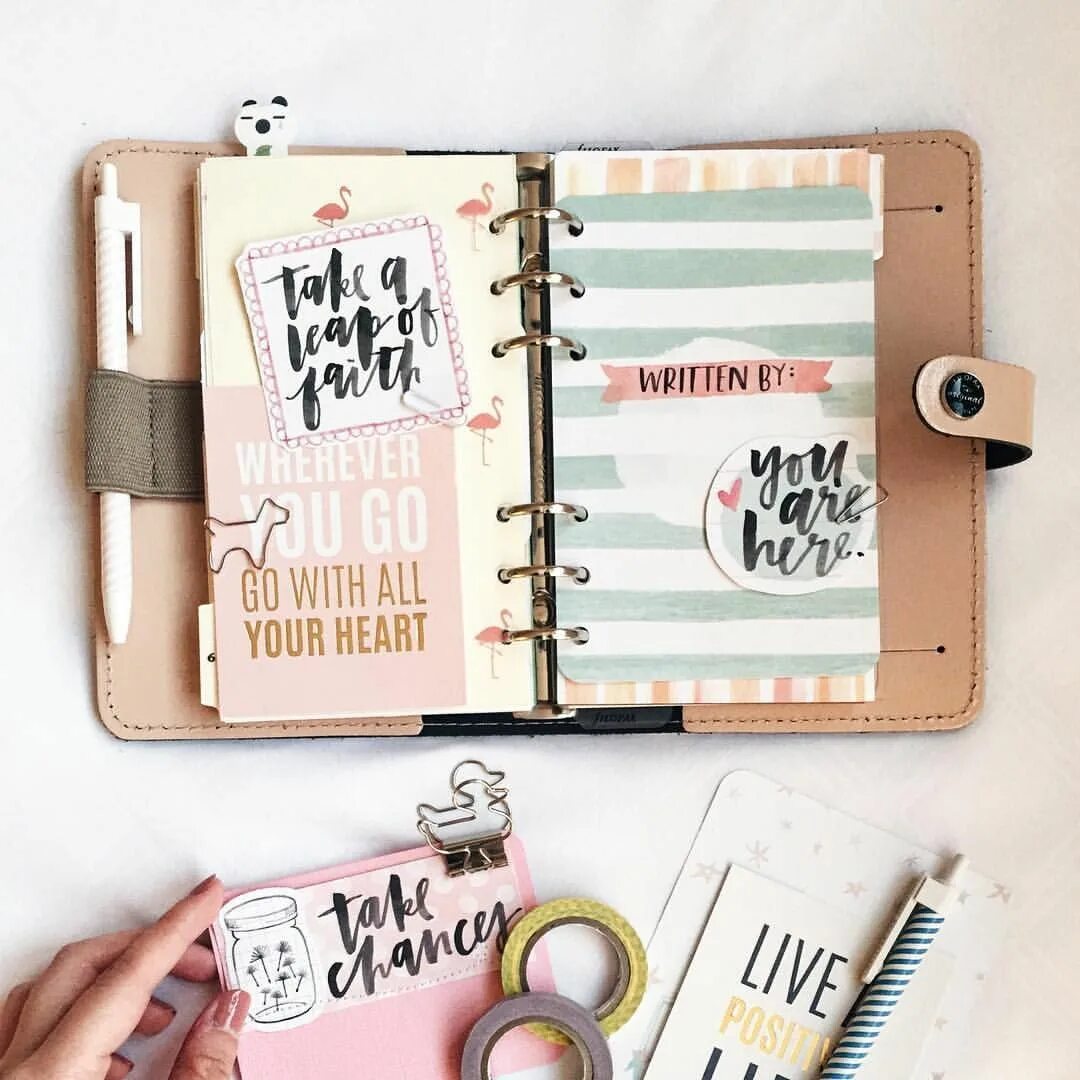 take a
leap of
faith
WHEREVER
YOU GO
GO WITH ALL
YOUR HEART
6
WRITTEN BY:
you
are
here.
original
filofax
take
chances
LIVE
POSITI